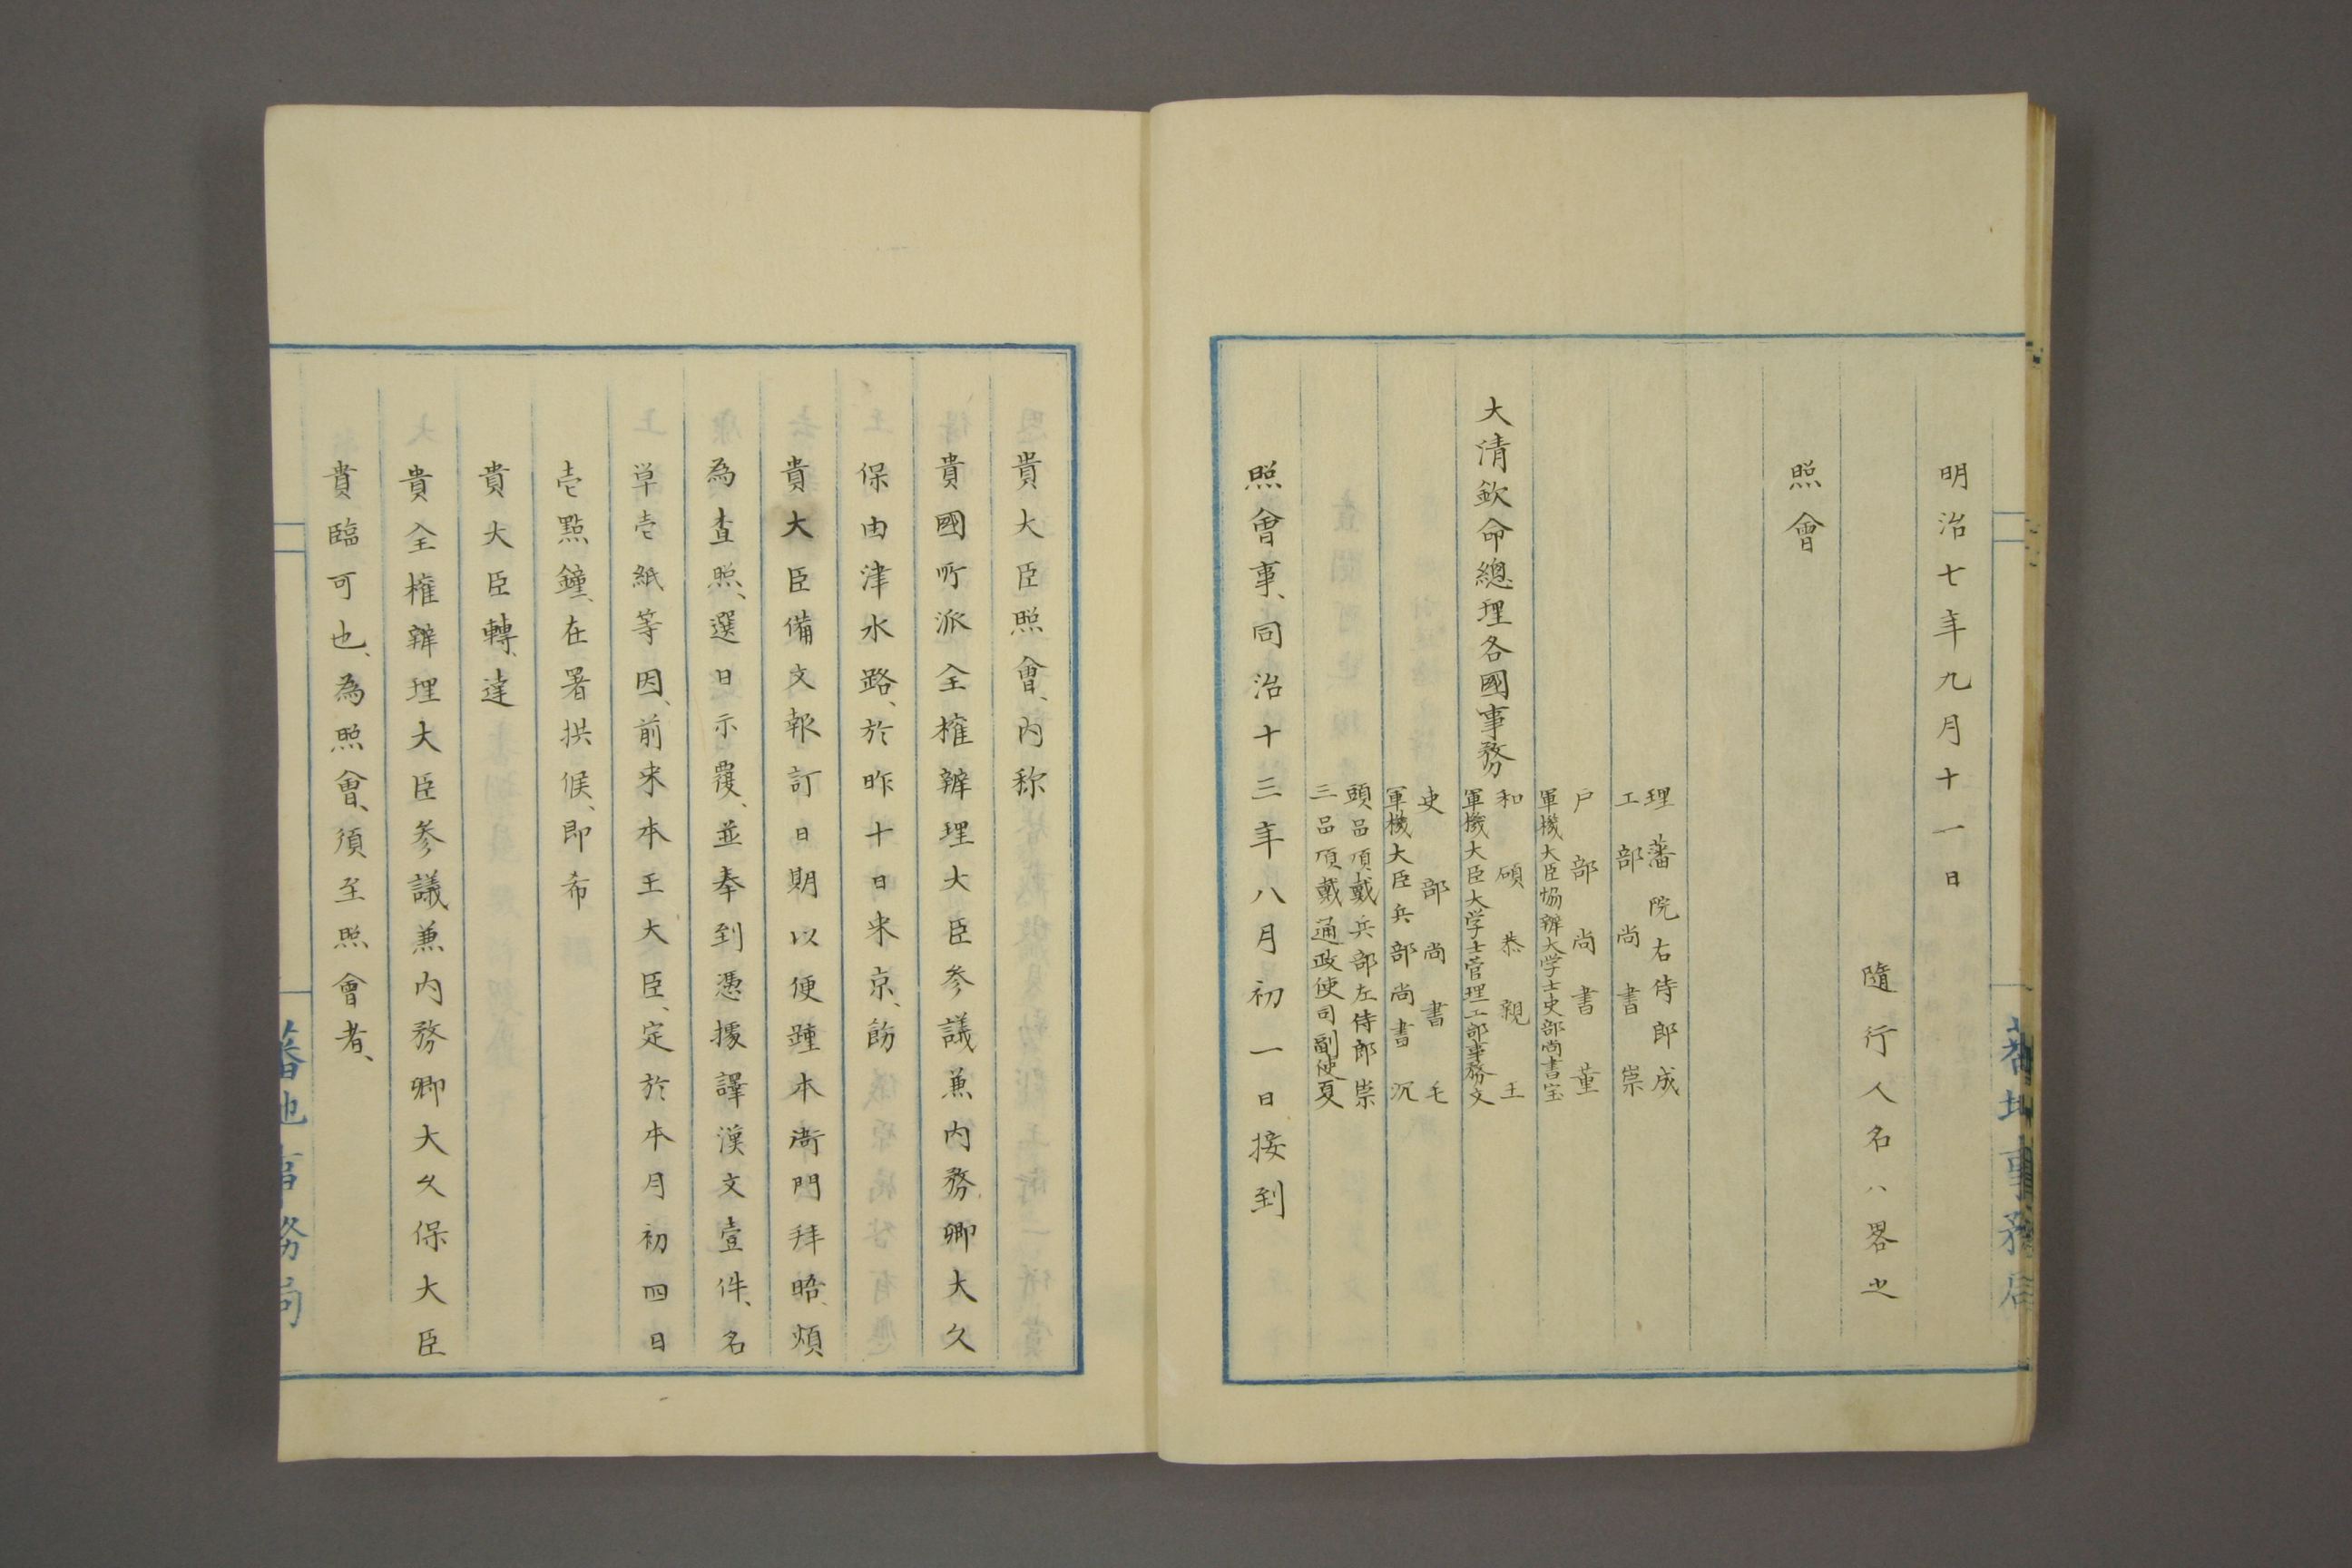 明治七年九月十一日
隨行人名ハ畧之
照會
理藩院右侍郎成
工部尚書崇
戶部尚書董
軍機大臣協辦大学士吏部尚書宝
大清欽命總理各國事務
和碩恭親王
軍機大臣大学士管理工部事務文
吏部尚書毛
軍機大臣兵部尚書沉
頭品頂戴兵部左侍郎崇
三品頂戴通政使司副使夏
照會事、同治十三年八月初一日接到
貴大臣照會、內称
貴國所派全權辦理大臣参議兼內務卿大久
保由津水路、於昨十日来京、飭
貴大臣備文報訂日期以便踵本衙門拜晤、煩
為査照、選日示覆、並奉到憑據譯漢文壹件、名
单壱紙等因、前来本王大臣、定於本月初四日
壱點鐘、在署拱候、即希
貴大臣轉、達
貴全權辦理大臣参議兼內務卿大久保大臣
貴臨可也、為照會、須至照會者、
蕃地事務局